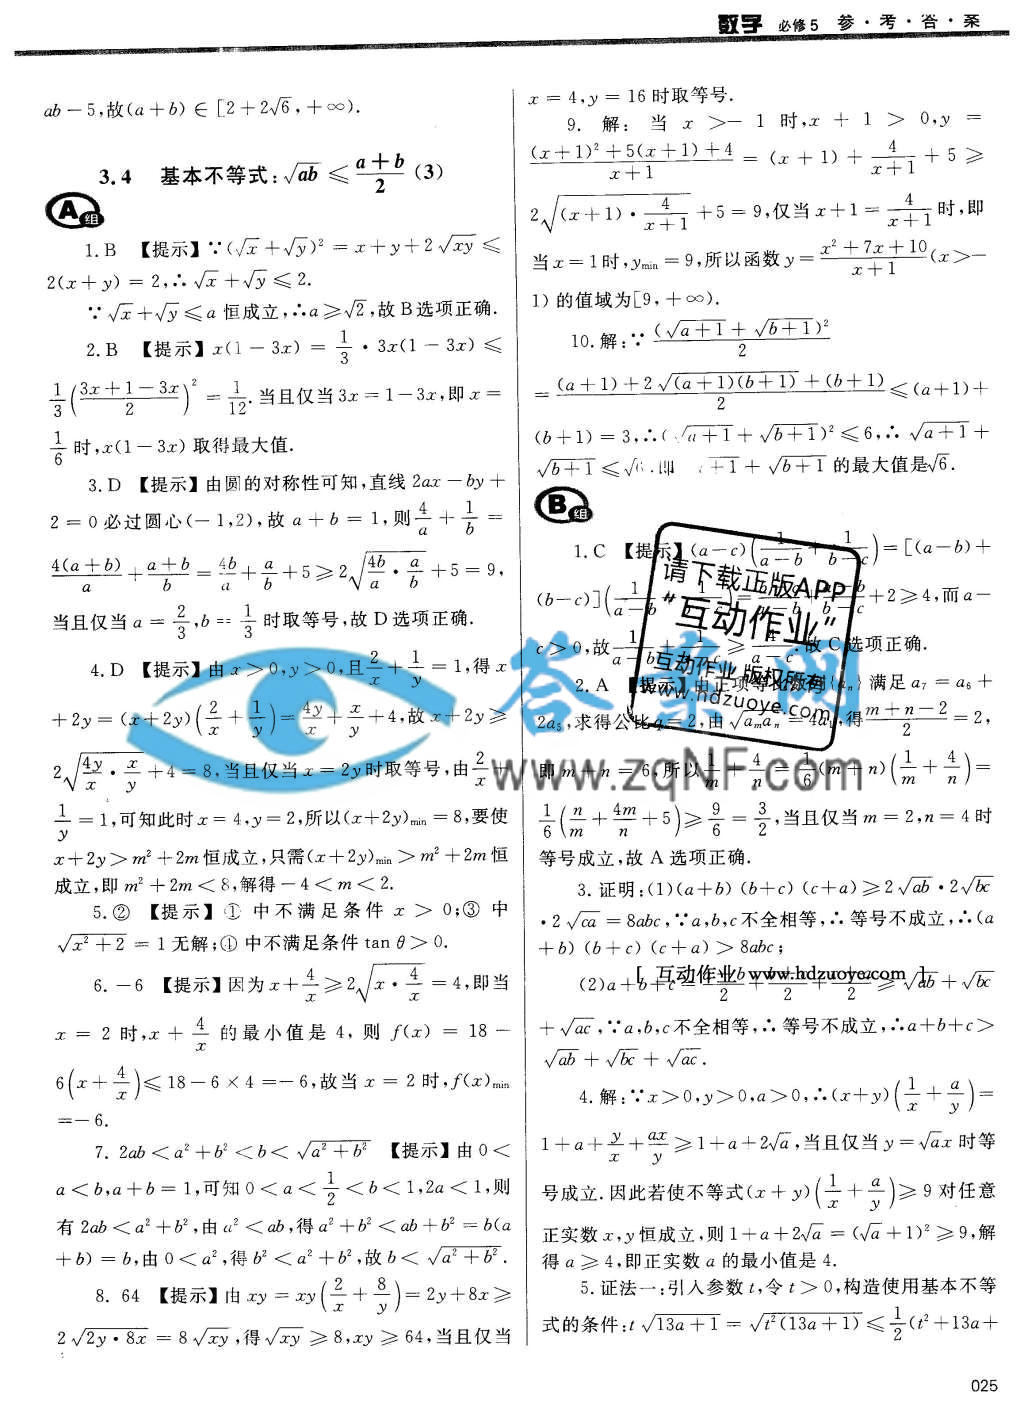 数学 必修5 参·考·答·案
ab－5,故(a＋b)∈[2＋2√6,＋∞).
3.4 基本不等式:√ab≤(a＋b)/2(3)
A组
1.B 【提示】∵(√x＋√y)²＝x＋y＋2√xy≤
2(x＋y)＝2,∴√x＋√y≤2.
∵√x＋√y≤a恒成立,∴a≥√2,故B选项正确.
2.B 【提示】x(1－3x)＝1/3·3x(1－3x)≤
1/3((3x＋1－3x)/2)²＝1/12.当且仅当3x＝1－3x,即x＝
1/6时,x(1－3x)取得最大值.
3.D 【提示】由圆的对称性可知,直线2ax－by＋
2＝0必过圆心(－1,2),故a＋b＝1,则4/a＋1/b＝
4(a＋b)/a＋(a＋b)/b＝4b/a＋a/b＋5≥2√(4b/a·a/b)＋5＝9,
当且仅当a＝2/3,b＝1/3时取等号,故D选项正确.
4.D 【提示】由x＞0,y＞0,且2/x＋1/y＝1,得x
＋2y＝(x＋2y)(2/x＋1/y)＝4y/x＋x/y＋4,故x＋2y≥
2√(4y/x·x/y)＋4＝8,当且仅当x＝2y时取等号,由2/x＋
1/y＝1,可知此时x＝4,y＝2,所以(x＋2y)min＝8,要使
x＋2y＞m²＋2m恒成立,只需(x＋2y)min＞m²＋2m恒
成立,即m²＋2m＜8,解得－4＜m＜2.
5.② 【提示】①中不满足条件x＞0;③中
√(x²＋2)＝1无解;④中不满足条件tanθ＞0.
6.－6 【提示】因为x＋4/x≥2√(x·4/x)＝4,即当
x＝2时,x＋4/x的最小值是4,则f(x)＝18－
6(x＋4/x)≤18－6×4＝－6,故当x＝2时,f(x)min
＝－6.
7.2ab＜a²＋b²＜b＜√(a²＋b²) 【提示】由0＜
a＜b,a＋b＝1,可知0＜a＜1/2＜b＜1,2a＜1,则
有2ab＜a²＋b²,由a²＜ab,得a²＋b²＜ab＋b²＝b(a
＋b)＝b,由0＜a²,得b²＜a²＋b²,故b＜√(a²＋b²).
8.64 【提示】由xy＝xy(2/x＋8/y)＝2y＋8x≥
2√(2y·8x)＝8√xy,得√xy≥8,xy≥64,当且仅当
x＝4,y＝16时取等号.
9.解:当x＞－1时,x＋1＞0,y＝
((x＋1)²＋5(x＋1)＋4)/(x＋1)＝(x＋1)＋4/(x＋1)＋5≥
2√((x＋1)·4/(x＋1))＋5＝9,仅当x＋1＝4/(x＋1)时,即
当x＝1时,ymin＝9,所以函数y＝(x²＋7x＋10)/(x＋1)(x＞－
1)的值域为[9,＋∞).
10.解:∵(√(a＋1)＋√(b＋1))²/2
＝((a＋1)＋2√((a＋1)(b＋1))＋(b＋1))/2≤(a＋1)＋
(b＋1)＝3,∴(√(a＋1)＋√(b＋1))²≤6,∴√(a＋1)＋
√(b＋1)≤√6.即√(a＋1)＋√(b＋1)的最大值是√6.
B组
1.C 【提示】(a－c)(1/(a－b)＋1/(b－c))＝[(a－b)＋
(b－c)](1/(a－b)＋1/(b－c))＝＋2≥4,而a－
c＞0,故1/(a－b)＋1/(b－c)≥4/(a－c).故C选项正确.
2.A 【提示】由正项等比数列{an}满足a7＝a6＋
2a5,求得公比q＝2,由√(aman)＝4a1,得(m＋n－2)/2＝2,
即m＋n＝6,所以1/m＋4/n＝1/6(m＋n)(1/m＋4/n)＝
1/6(n/m＋4m/n＋5)≥9/6＝3/2,当且仅当m＝2,n＝4时
等号成立,故A选项正确.
3.证明:(1)(a＋b)(b＋c)(c＋a)≥2√ab·2√bc
·2√ca＝8abc,∵a,b,c不全相等,∴等号不成立,∴(a
＋b)(b＋c)(c＋a)＞8abc;
(2)a＋b＋c＝≥√ab＋√bc
＋√ac,∵a,b,c不全相等,∴等号不成立,∴a＋b＋c＞
√ab＋√bc＋√ac.
4.解:∵x＞0,y＞0,a＞0,∴(x＋y)(1/x＋a/y)＝
1＋a＋y/x＋ax/y≥1＋a＋2√a,当且仅当y＝√ax时等
号成立.因此若使不等式(x＋y)(1/x＋a/y)≥9对任意
正实数x,y恒成立,则1＋a＋2√a＝(√a＋1)²≥9,解
得a≥4,即正实数a的最小值是4.
5.证法一:引入参数t,令t＞0,构造使用基本不等
式的条件:t√(13a＋1)＝√(t²(13a＋1))≤1/2(t²＋13a＋
请下载正版APP
“互动作业”
互动作业 版权所有
www.hdzuoye.com
[ 互动作业 www.hdzuoye.com ]
答案网
www.zqNF.com
025